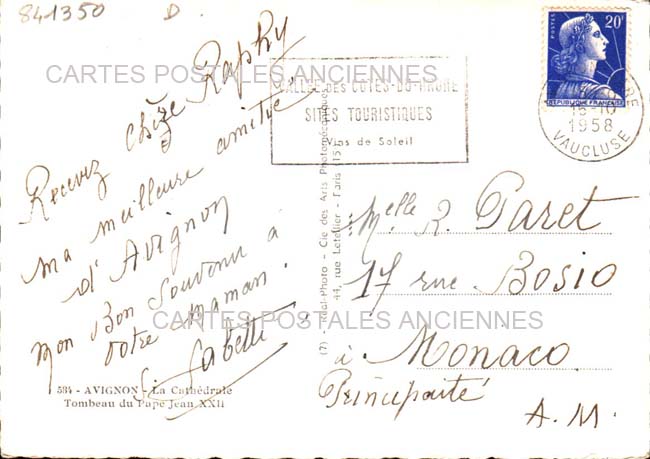 841350 D
CARTES POSTALES ANCIENNES
Recevez chère Raphy
ma meilleure amitié
d'Avignon
mon Bon Souvenir à
votre maman.
VALLEE DES COTES-DU-RHONE
SITES TOURISTIQUES
Vins de Soleil
POSTES
20F
REPUBLIQUE FRANÇAISE
15-10
1958
VAUCLUSE
Melle R. Paret
17 rue Bosio
à Monaco
Principauté
A.M.
CARTES POSTALES ANCIENNES
584 - AVIGNON - La Cathédrale
Tombeau du Pape Jean XXII
(7) Réal-Photo - Cie des Arts Photomécaniques
44, rue Letellier - Paris - 15